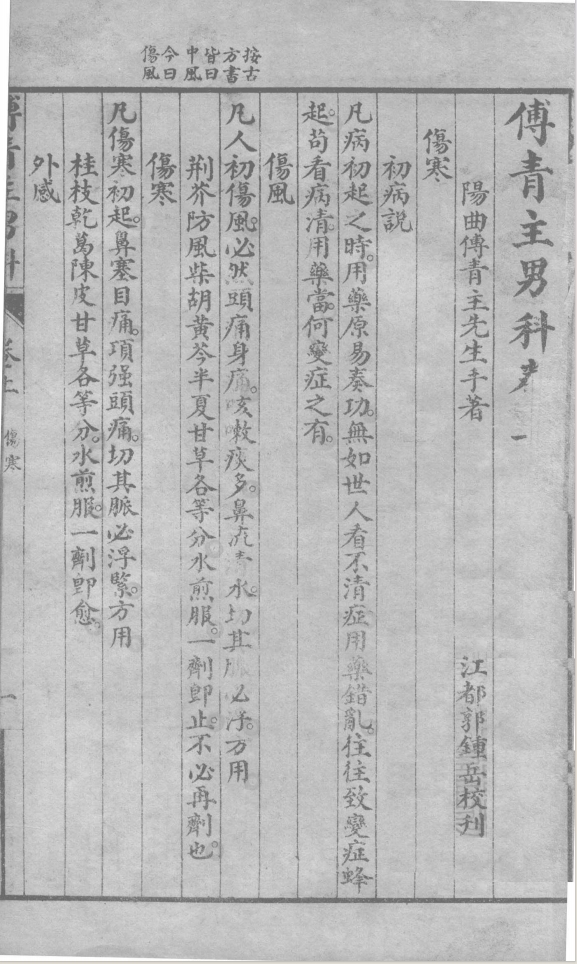 按古
方書
皆曰
中風
今曰
傷風
傅青主男科
陽曲傅青主先生手著
江都郭鍾岳校刋
傷寒
初病説
凡病初起之時。用藥原易奏功。無如世人看不清症用藥錯亂。往往致變症蜂
起。苟看病清。用藥當。何變症之有。
傷風
凡人初傷風。必然頭痛身痛。咳嗽痰多。鼻流清水。切其脈必浮。方用
荆芥防風柴胡黃芩半夏甘草各等分水煎服。一劑卽止。不必再劑也。
傷寒
凡傷寒初起。鼻塞目痛。項强頭痛。切其脈必浮緊。方用
桂枝乾葛陳皮甘草各等分。水煎服。一劑卽愈。
外感
傅青主男科
卷上
傷寒
一